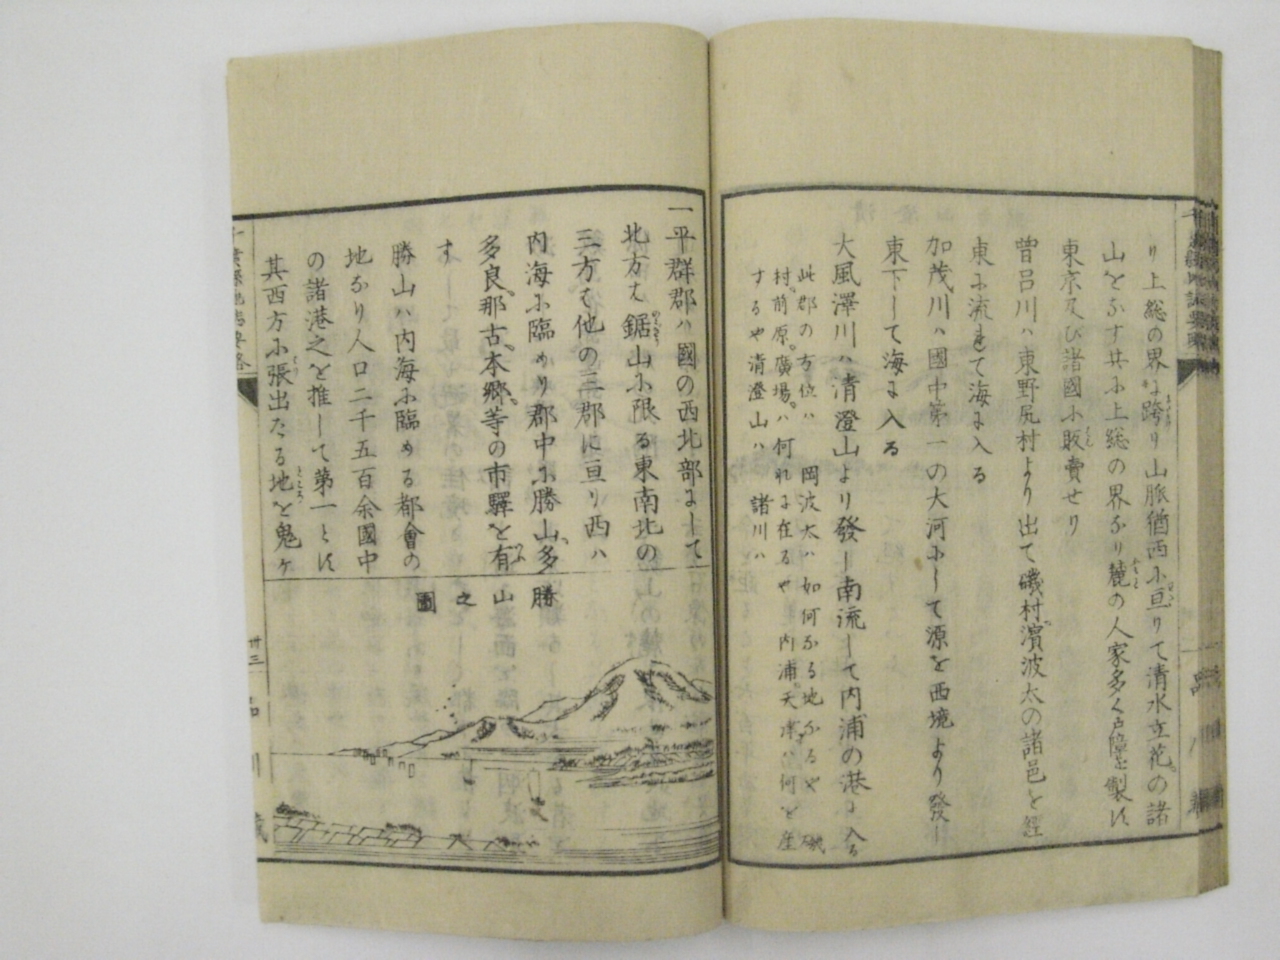 り上総の界に跨り山脈猶西小亘りて清水立花の諸
山をなす其小上総の界なり麓の人家多く戸障を製し
東京及び諸國小販賣せり
曽呂川ハ東野尻村より出て磯村濱波太の諸邑を經
東に流れて海に入る
加茂川ハ國中第一の大河にして源を西境より發し
東下して海に入る
大風澤川ハ清澄山より發し南流して内浦の港に入る
此郡の方位ハ 岡波太ハ如何なる地なるや 磯
村前原廣場ハ何れに在るや 内浦天津ハ何を産
するや清澄山ハ 諸川ハ
一平群郡ハ國の西北部にして
北方は鋸山小限る東南北の
三方は他の三郡に亘り西ハ
内海小臨めり郡中小勝山多
多良那古本郷等の市驛を有
す
勝山ハ内海小臨める都會の
地なり人口二千五百余國中
の諸港之を推して第一とす
其西方小張出たる地を鬼ヶ
勝
山
之
圖
千葉縣地誌要略
廿三